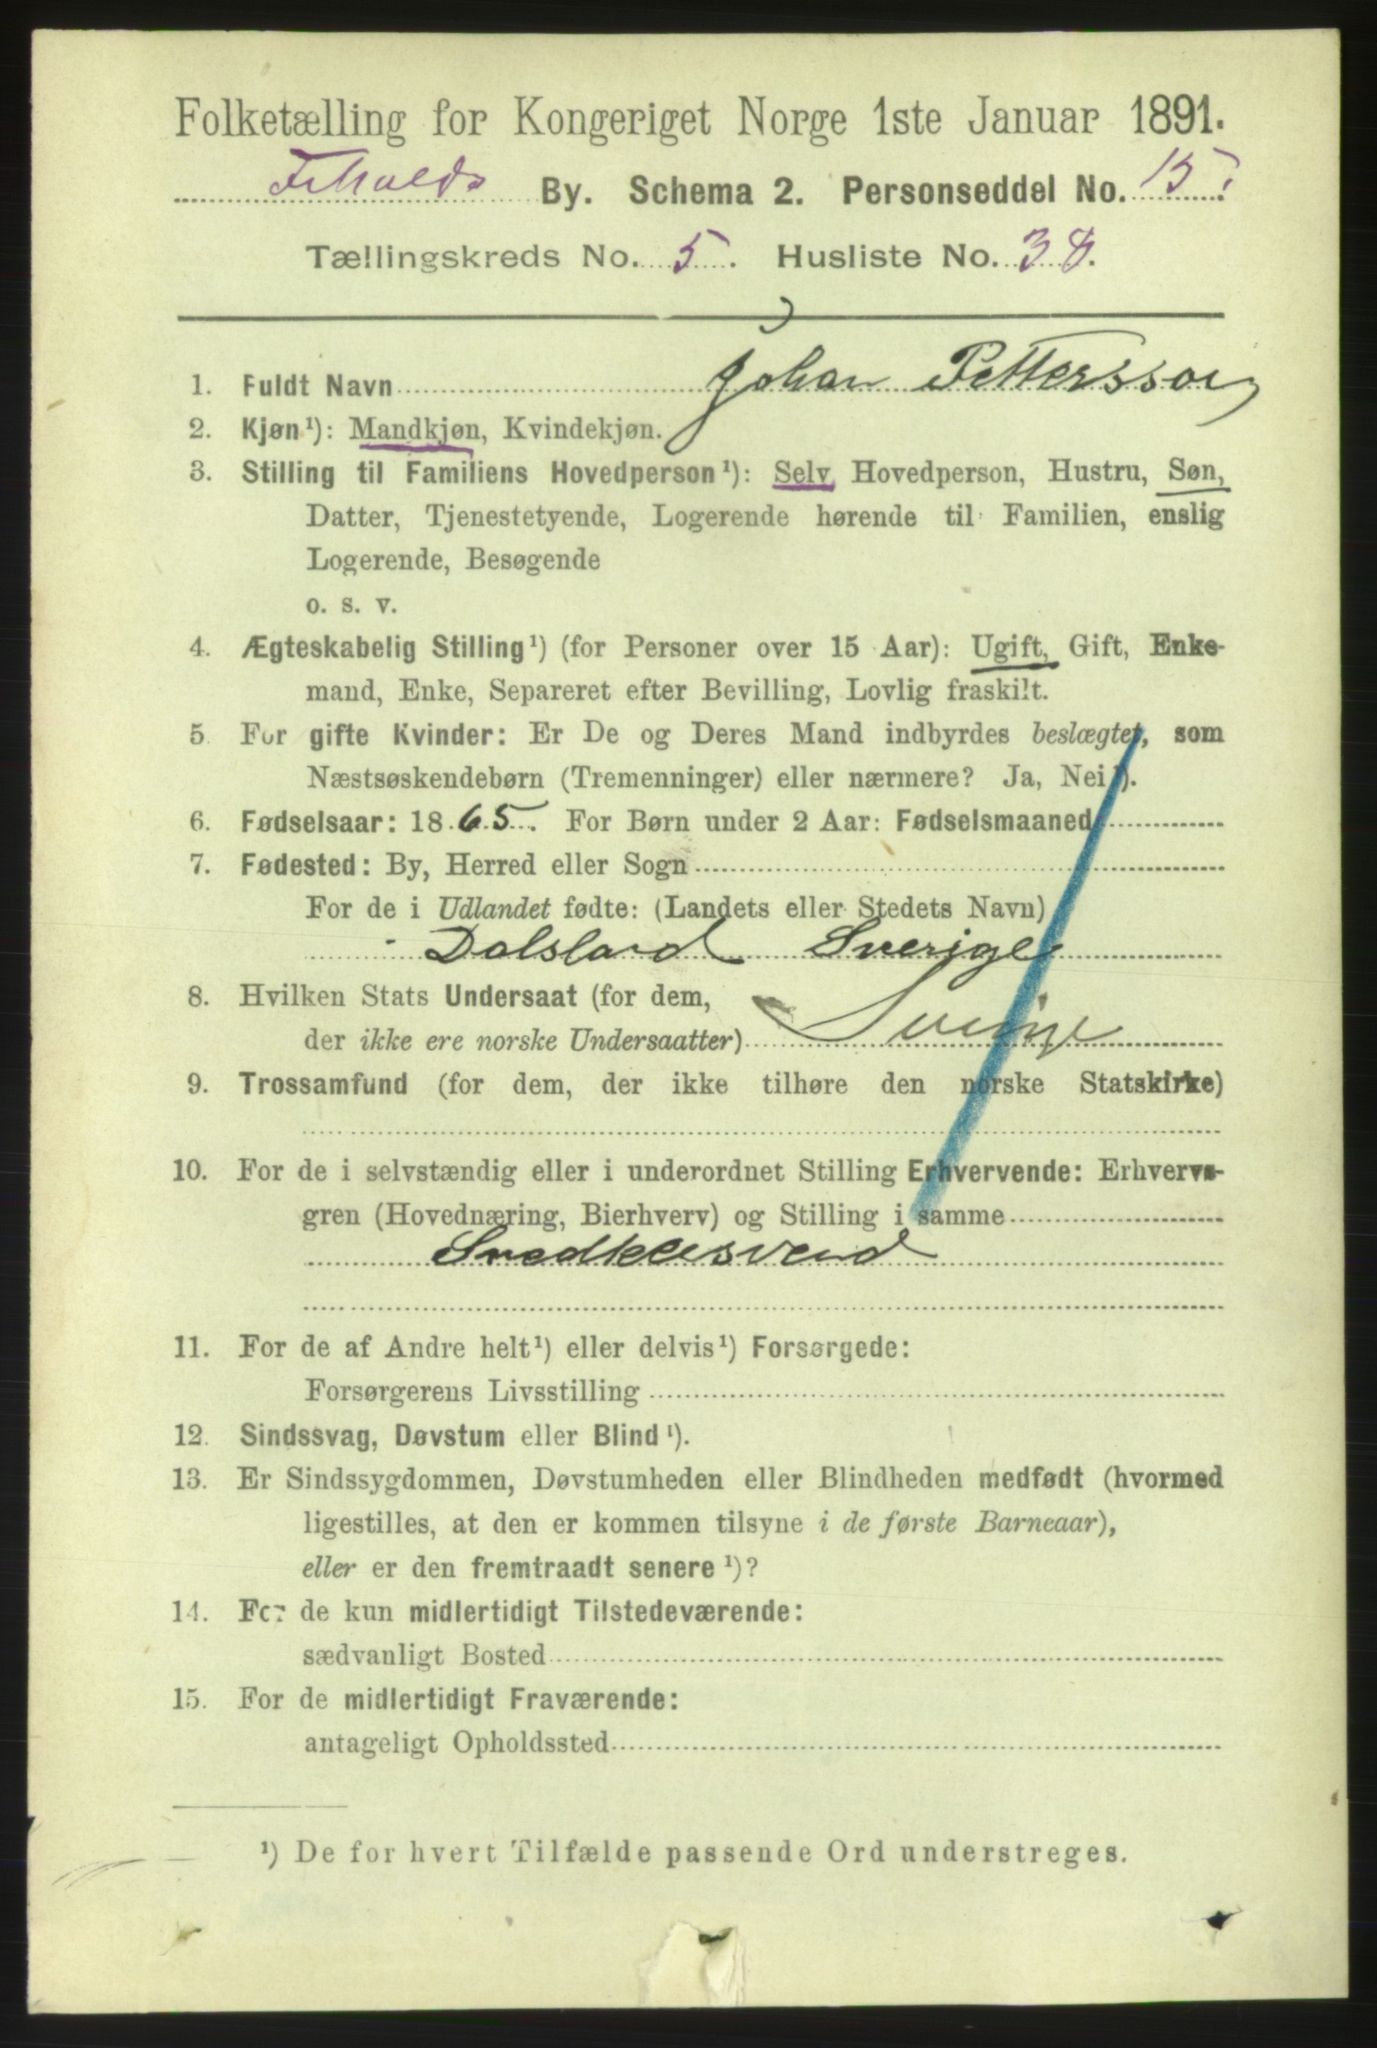 Folketælling for Kongeriget Norge 1ste Januar 1891.
Frhalds By. Schema 2. Personseddel No. 15.
Tællingskreds No. 5. Husliste No. 38.
1. Fuldt Navn Johan Pettersson
2. Kjøn¹): Mandkjøn, Kvindekjøn.
3. Stilling til Familiens Hovedperson¹): Selv Hovedperson, Hustru, Søn,
Datter, Tjenestetyende, Logerende hørende til Familien, enslig
Logerende, Besøgende
o. s. v.
4. Ægteskabelig Stilling¹) (for Personer over 15 Aar): Ugift, Gift, Enke-
mand, Enke, Separeret efter Bevilling, Lovlig fraskilt.
5. For gifte Kvinder: Er De og Deres Mand indbyrdes beslægtet, som
Næstsøskendebørn (Tremenninger) eller nærmere? Ja, Nei¹).
6. Fødselsaar: 1865. For Børn under 2 Aar: Fødselsmaaned
7. Fødested: By, Herred eller Sogn
For de i Udlandet fødte: (Landets eller Stedets Navn)
Dalsland Sverige
8. Hvilken Stats Undersaat (for dem,
der ikke ere norske Undersaatter) Sverige
9. Trossamfund (for dem, der ikke tilhøre den norske Statskirke)
10. For de i selvstændig eller i underordnet Stilling Erhvervende: Erhvervs-
gren (Hovednæring, Bierhverv) og Stilling i samme
Snedkersvend
11. For de af Andre helt¹) eller delvis¹) Forsørgede:
Forsørgerens Livsstilling
12. Sindssvag, Døvstum eller Blind¹).
13. Er Sindssygdommen, Døvstumheden eller Blindheden medfødt (hvormed
ligestilles, at den er kommen tilsyne i de første Barneaar),
eller er den fremtraadt senere¹)?
14. For de kun midlertidigt Tilstedeværende:
sædvanligt Bosted
15. For de midlertidigt Fraværende:
antageligt Opholdssted
¹) De for hvert Tilfælde passende Ord understreges.